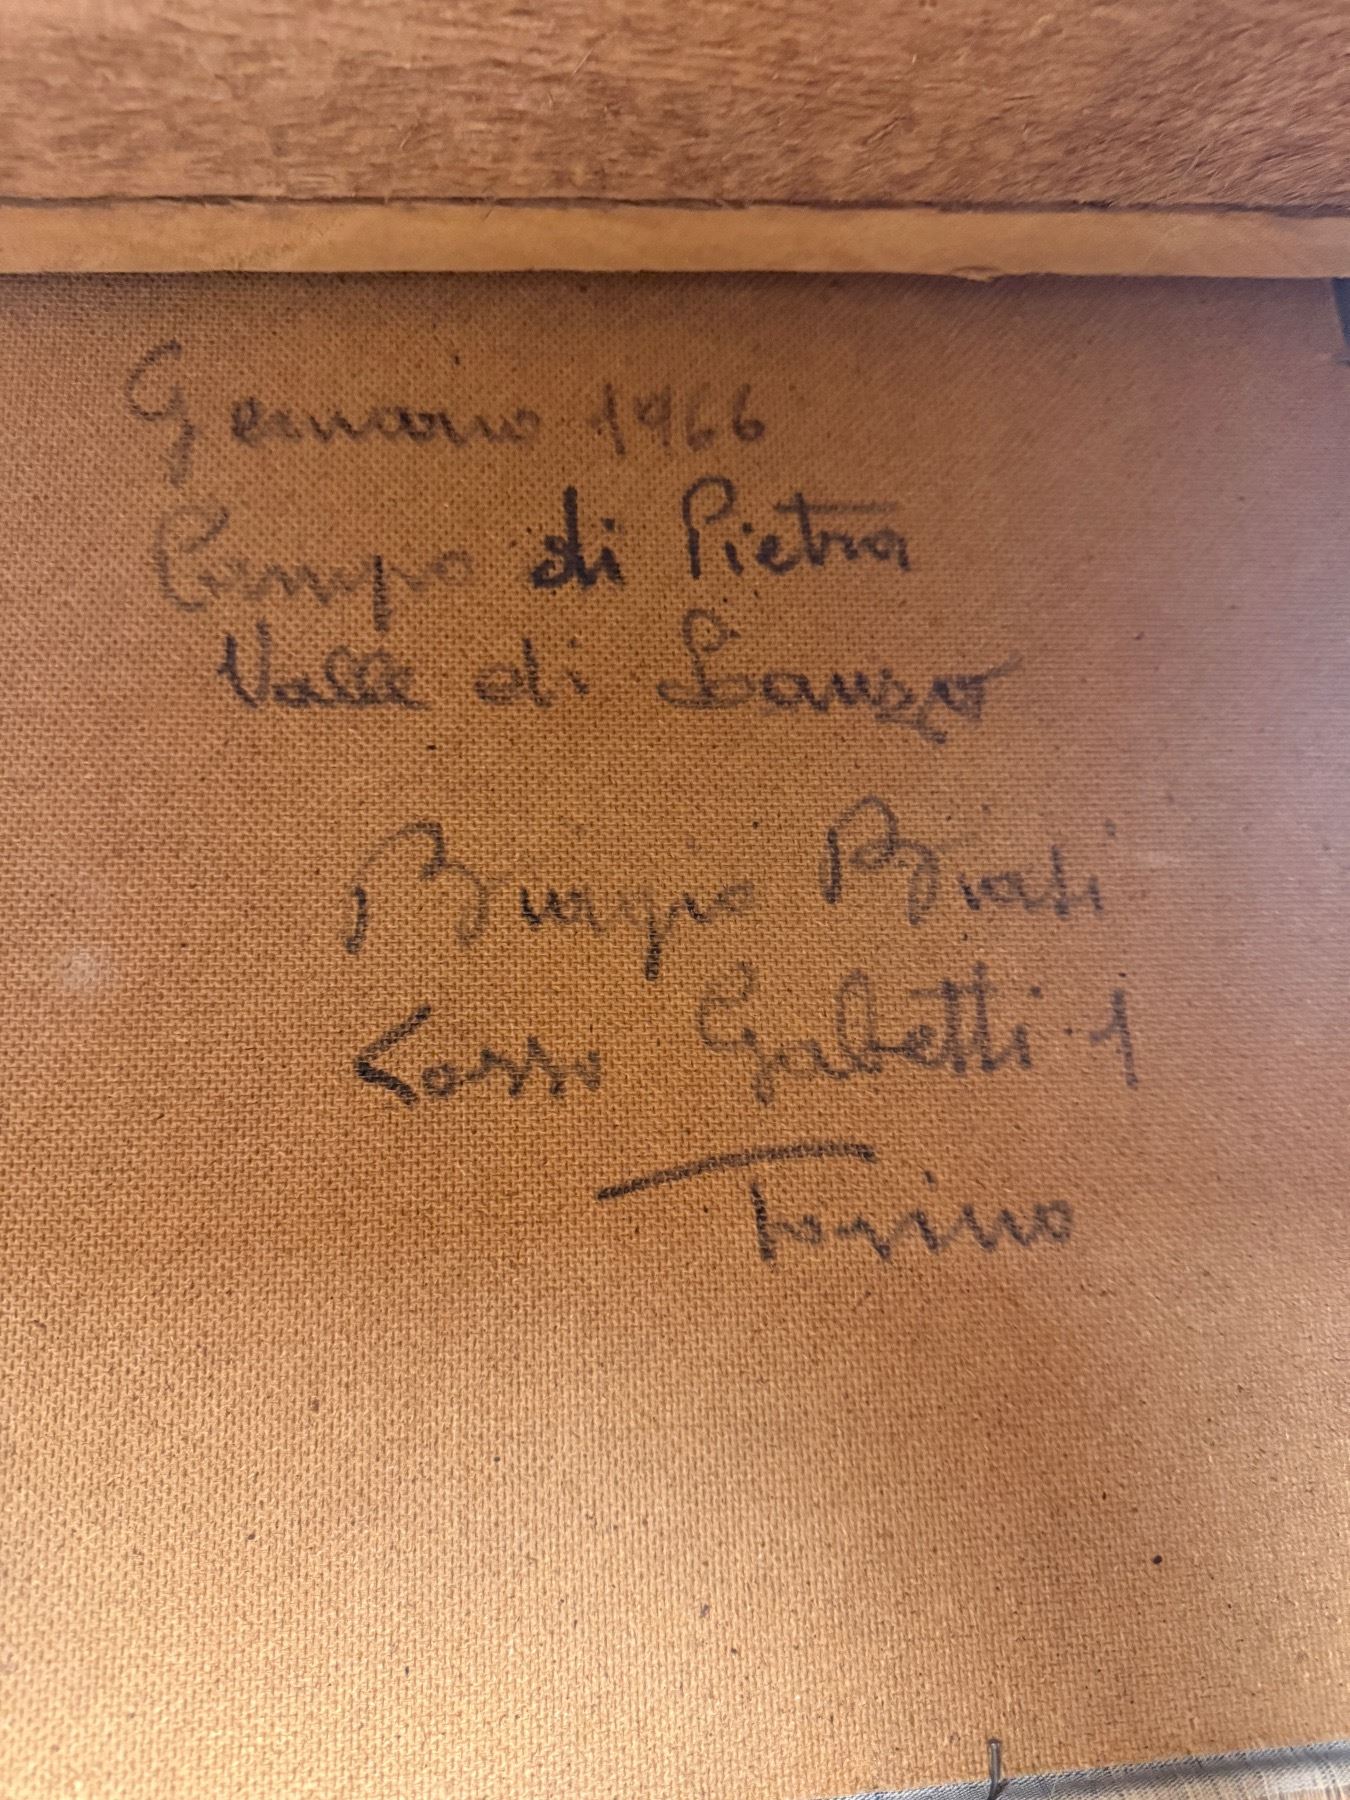 Gennaio 1966
Campo di Pietra
Valle di Lanzo
Biagio Biasi
Corso Gabetti 1
Torino